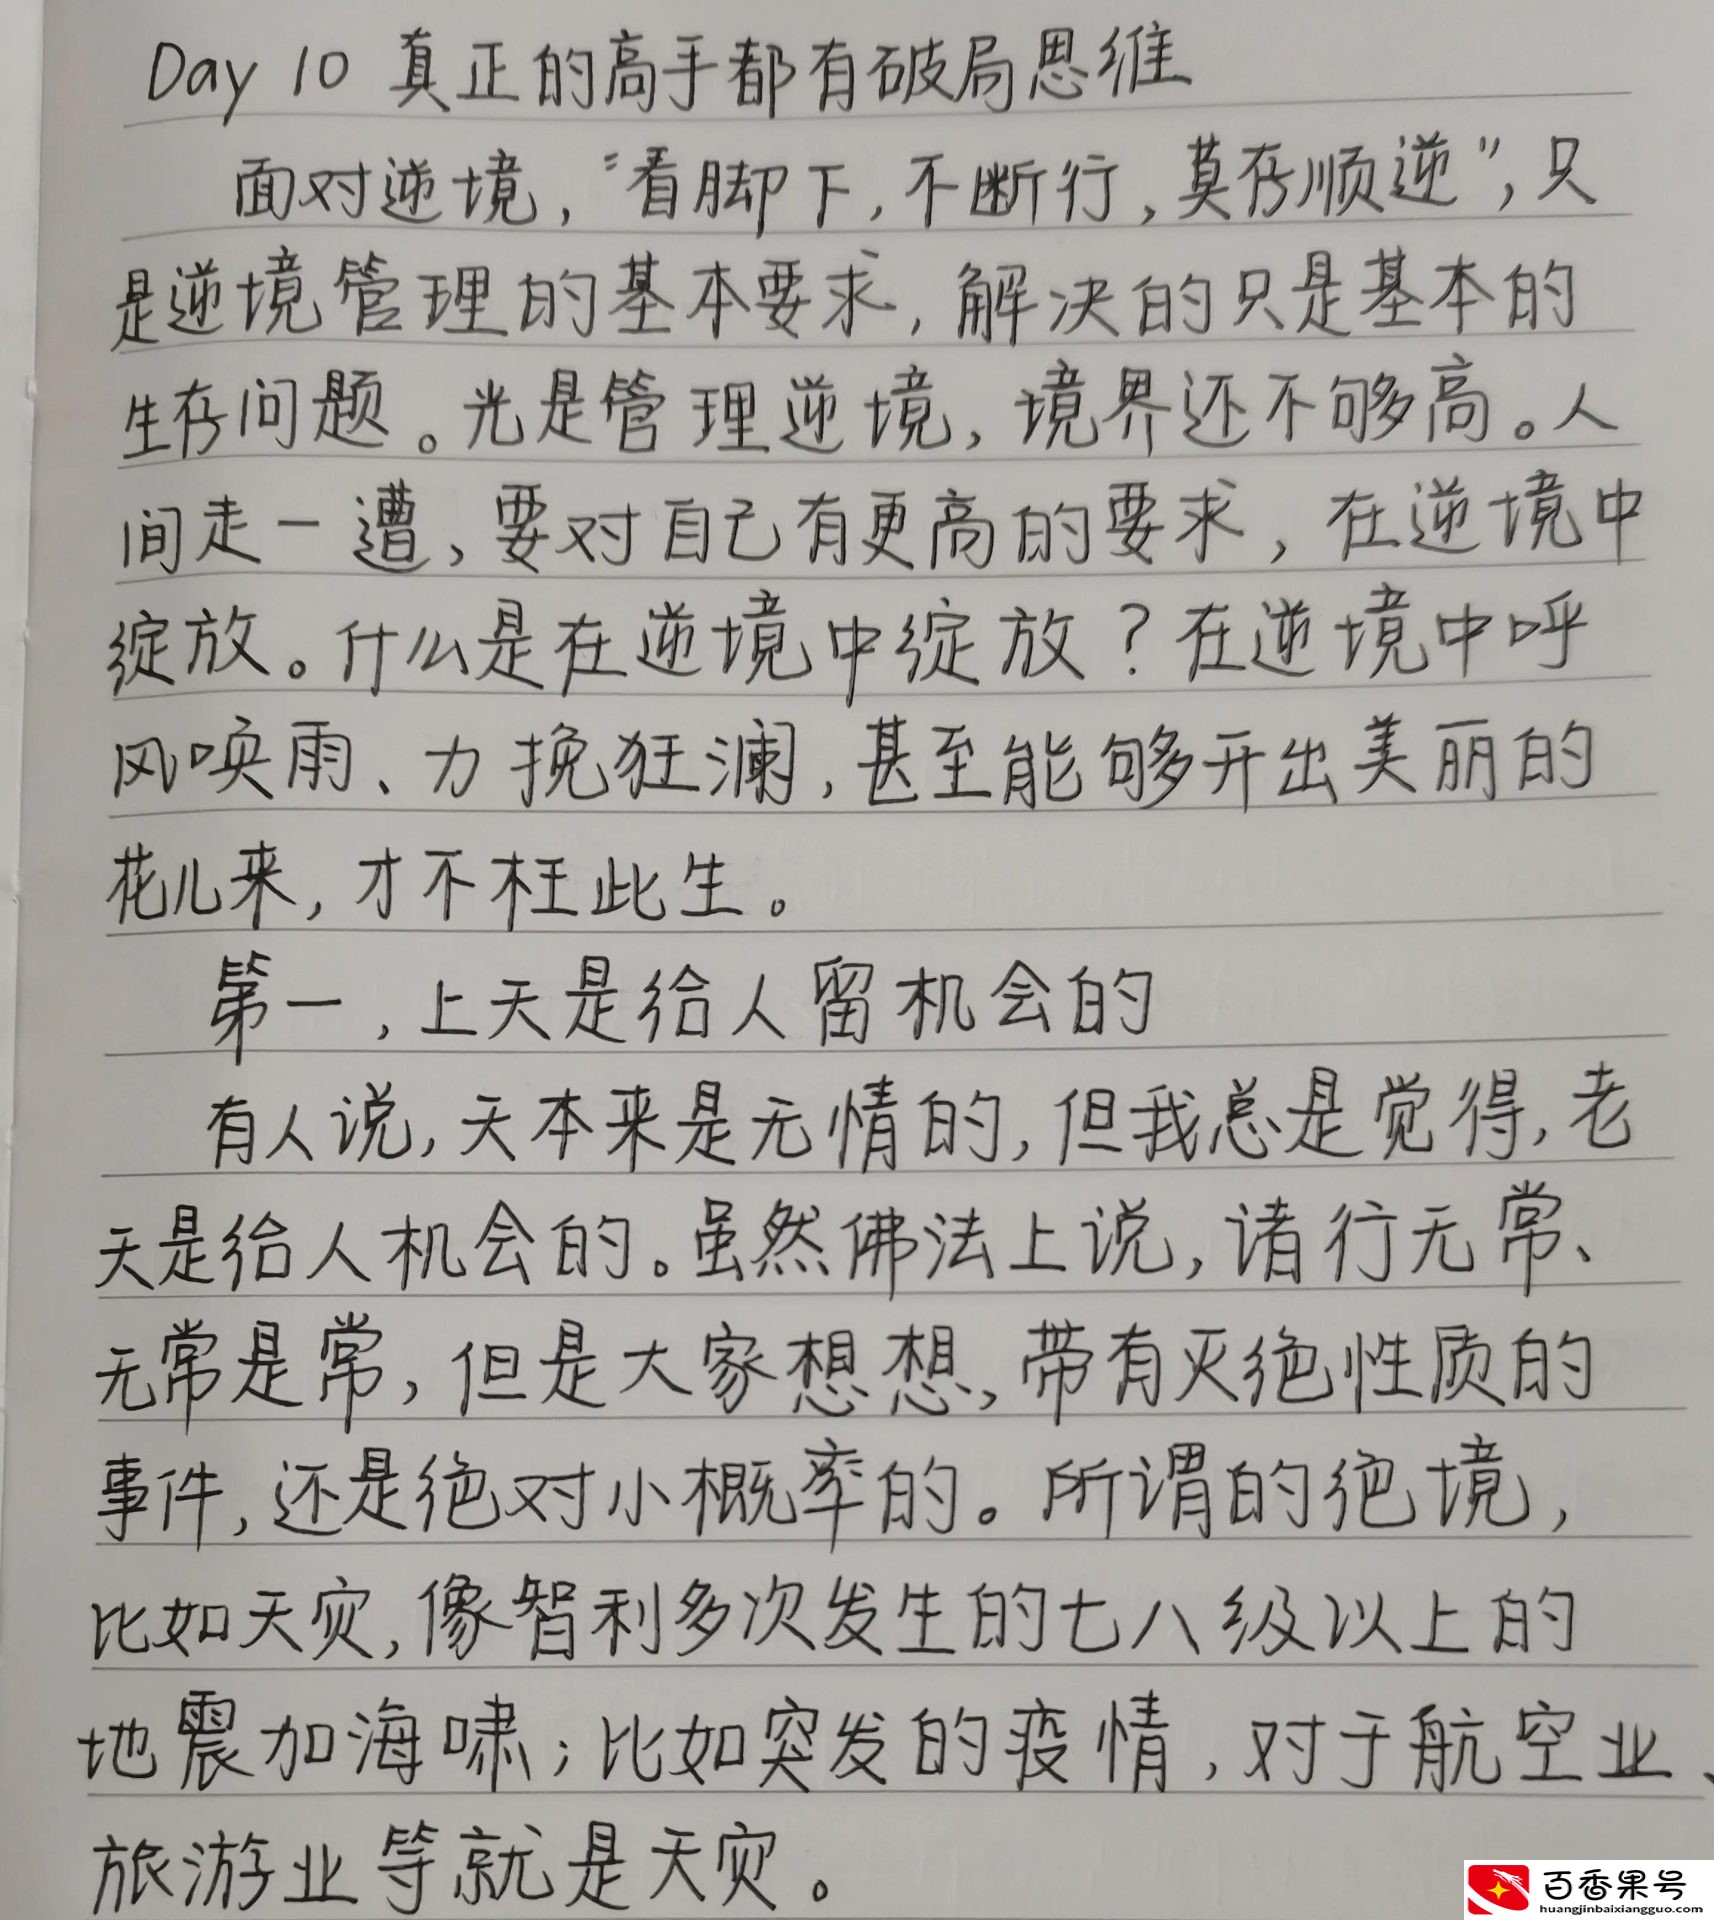 Day 10 真正的高手都有破局思维
面对逆境，“看脚下，不断行，莫存顺逆”，只
是逆境管理的基本要求，解决的只是基本的
生存问题。光是管理逆境，境界还不够高。人
间走一遭，要对自己有更高的要求，在逆境中
绽放。什么是在逆境中绽放？在逆境中呼
风唤雨、力挽狂澜，甚至能够开出美丽的
花儿来，才不枉此生。
第一，上天是给人留机会的
有人说，天本来是无情的，但我总是觉得，老
天是给人机会的。虽然佛法上说，诸行无常、
无常是常，但是大家想想，带有灭绝性质的
事件，还是绝对小概率的。所谓的绝境，
比如天灾，像智利多次发生的七八级以上的
地震加海啸；比如突发的疫情，对于航空业、
旅游业等就是天灾。
百香果号
huangjinbaixiangguo.com